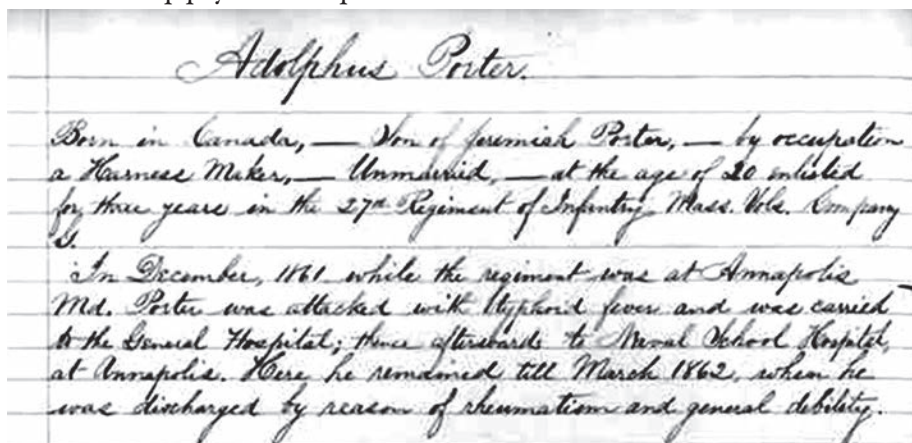 Adolphus Porter.
Born in Canada, — Son of Jeremiah Porter, — by occupation
a Harness Maker, — Unmarried, — at the age of 20 enlisted
for three years in the 27th Regiment of Infantry Mass. Vols. Company
G.
In December, 1861 while the regiment was at Annapolis
Md. Porter was attacked with typhoid fever and was carried
to the General Hospital; thence afterwards to Naval School Hospital,
at Annapolis. Here he remained till March 1862, when he
was discharged by reason of rheumatism and general debility.